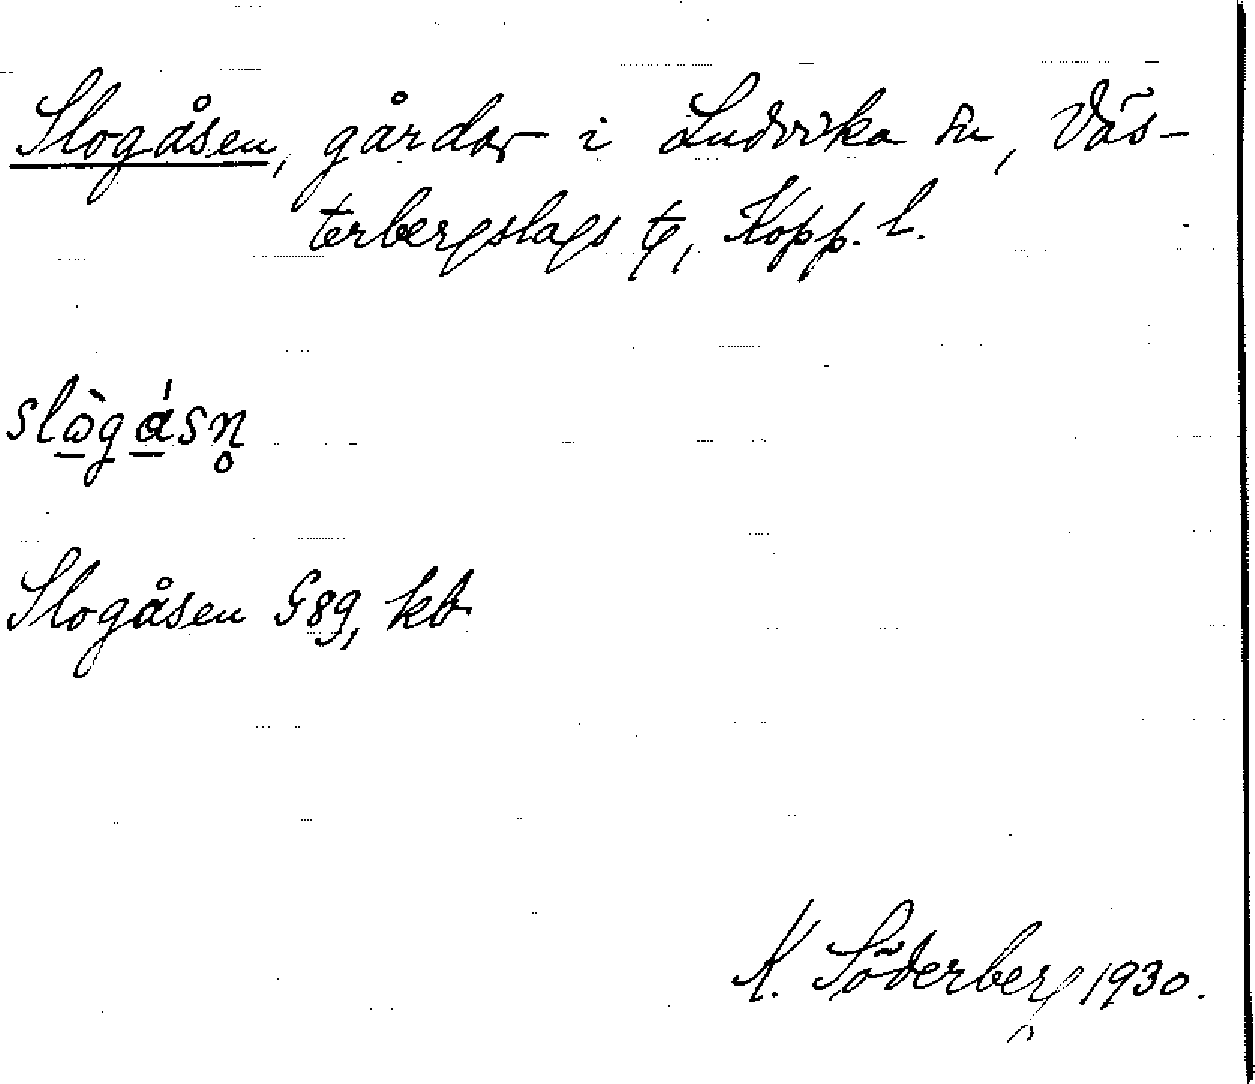 Slogåsen, gårdar i Ludvika sn, Väs-
terbergslags tg, Kopp. l.
slògásn̥
Slogåsen G89, kb
K. Söderberg 1930.